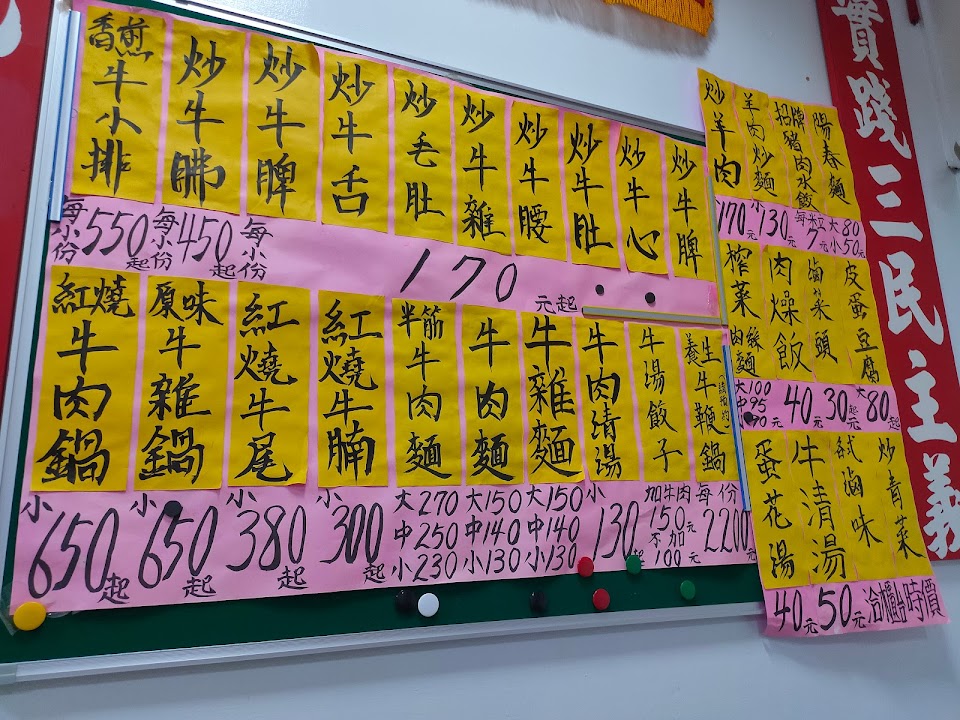 香煎牛小排
炒牛腩
炒牛脾
炒牛舌
炒毛肚
炒牛雜
炒牛腰
炒牛肚
炒牛心
炒牛脾
每小份550起
每小份450起
每小份
170元起
紅燒牛肉鍋
原味牛雜鍋
紅燒牛尾
紅燒牛腩
半筋牛肉麵
牛肉麵
牛雜麵
牛肉清湯
牛湯餃子
養生牛鞭鍋
小650起
小650起
小380起
小300起
大270
中250
小230
大150
中140
小130
大150
中140
小130
小130起
加牛肉150元
不加100元
每份2200元
炒羊肉
羊肉炒麵
招牌豬肉水餃
陽春麵
170元
小130元
每粒7元
大80
小50元
榨菜肉絲麵
肉燥飯
滷菜頭
皮蛋豆腐
大100
中95
40元
30元起
大80起
蛋花湯
牛清湯
滷味
炒青菜
40元
50元
冷櫃台時價
實踐三民主義